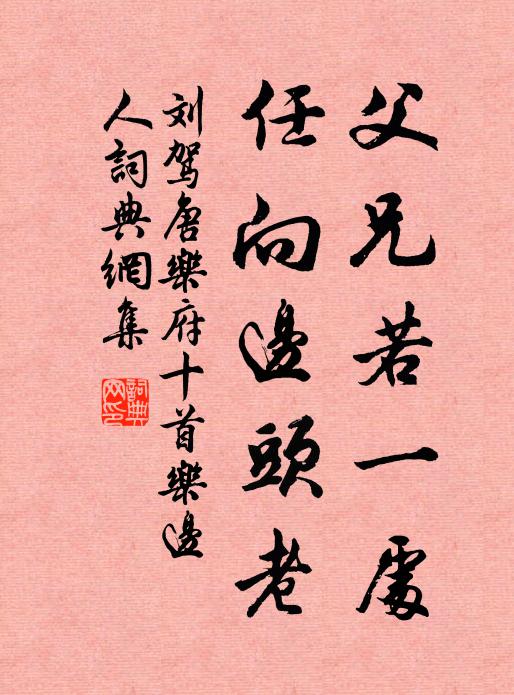 父兄若一處
任向邊頭老
刘驾唐樂府十首樂邊
人詞典網集
詞典
网印